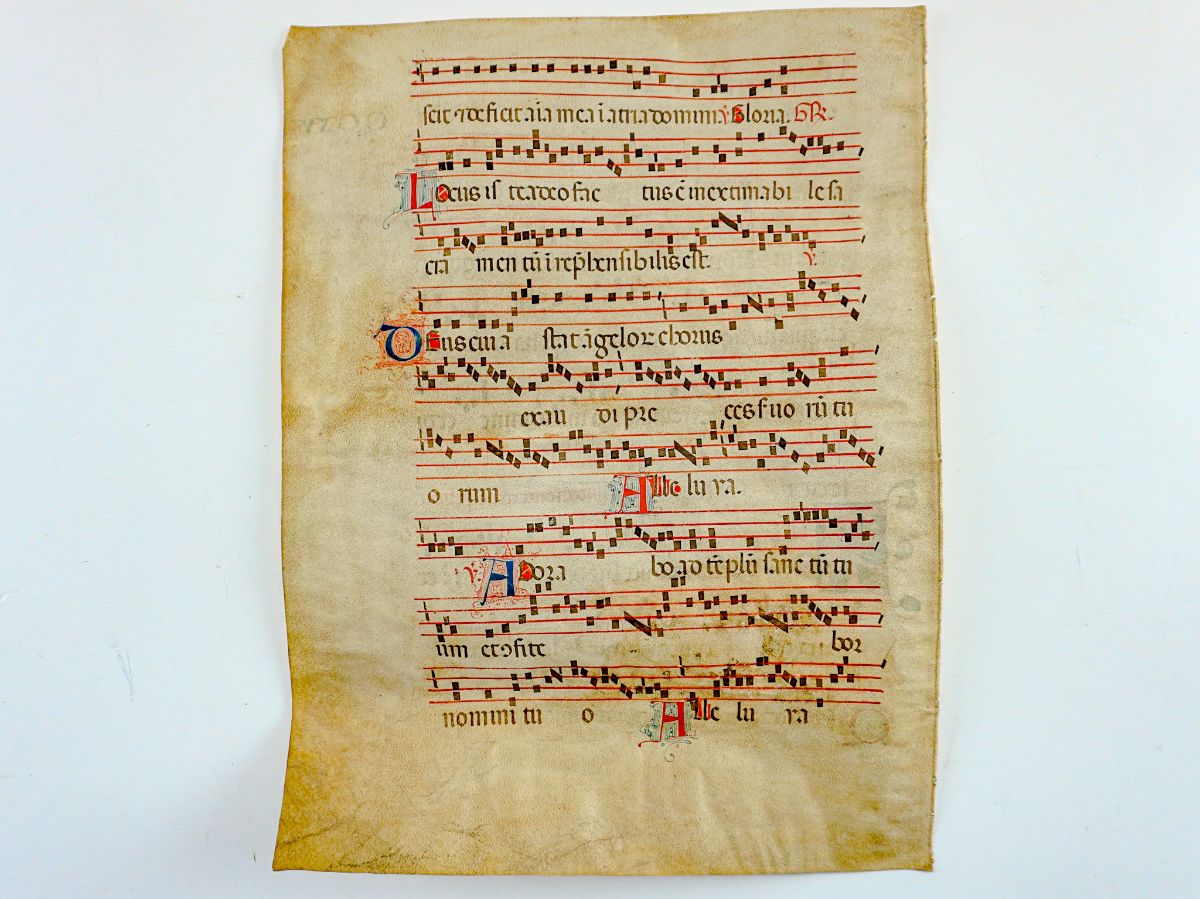 scit ⁊ deficit aīa mea ī atria domini. ℣. Gloria. GR̄.
Locus is te a deo fac tus ē inextimabi le sa
cra men tū ī rep̄hensibilis est. ℣.
Deus cui a stat āgeloꝝ chorus
exau di pre ces suo rū tu
o rum Alle lu ya.
℣. Adora bo ad tēplū sanc tū tu
um et ↄfite bor
nomini tu o Alle lu ya